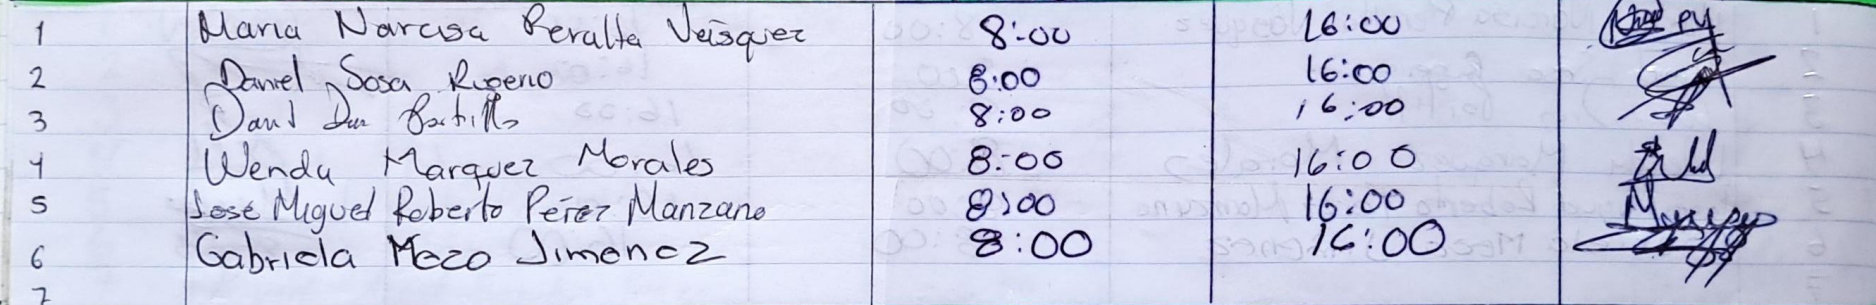 1 Maria Narcisa Peralta Vásquez 8:00 16:00
2 Daniel Sosa 8:00 16:00
3 David 8:00 16:00
4 Wendy Marquez Morales 8:00 16:00
5 José Miguel Roberto Pérez Manzano 8:00 16:00
6 Gabriela Mozo Jimenez 8:00 16:00
7